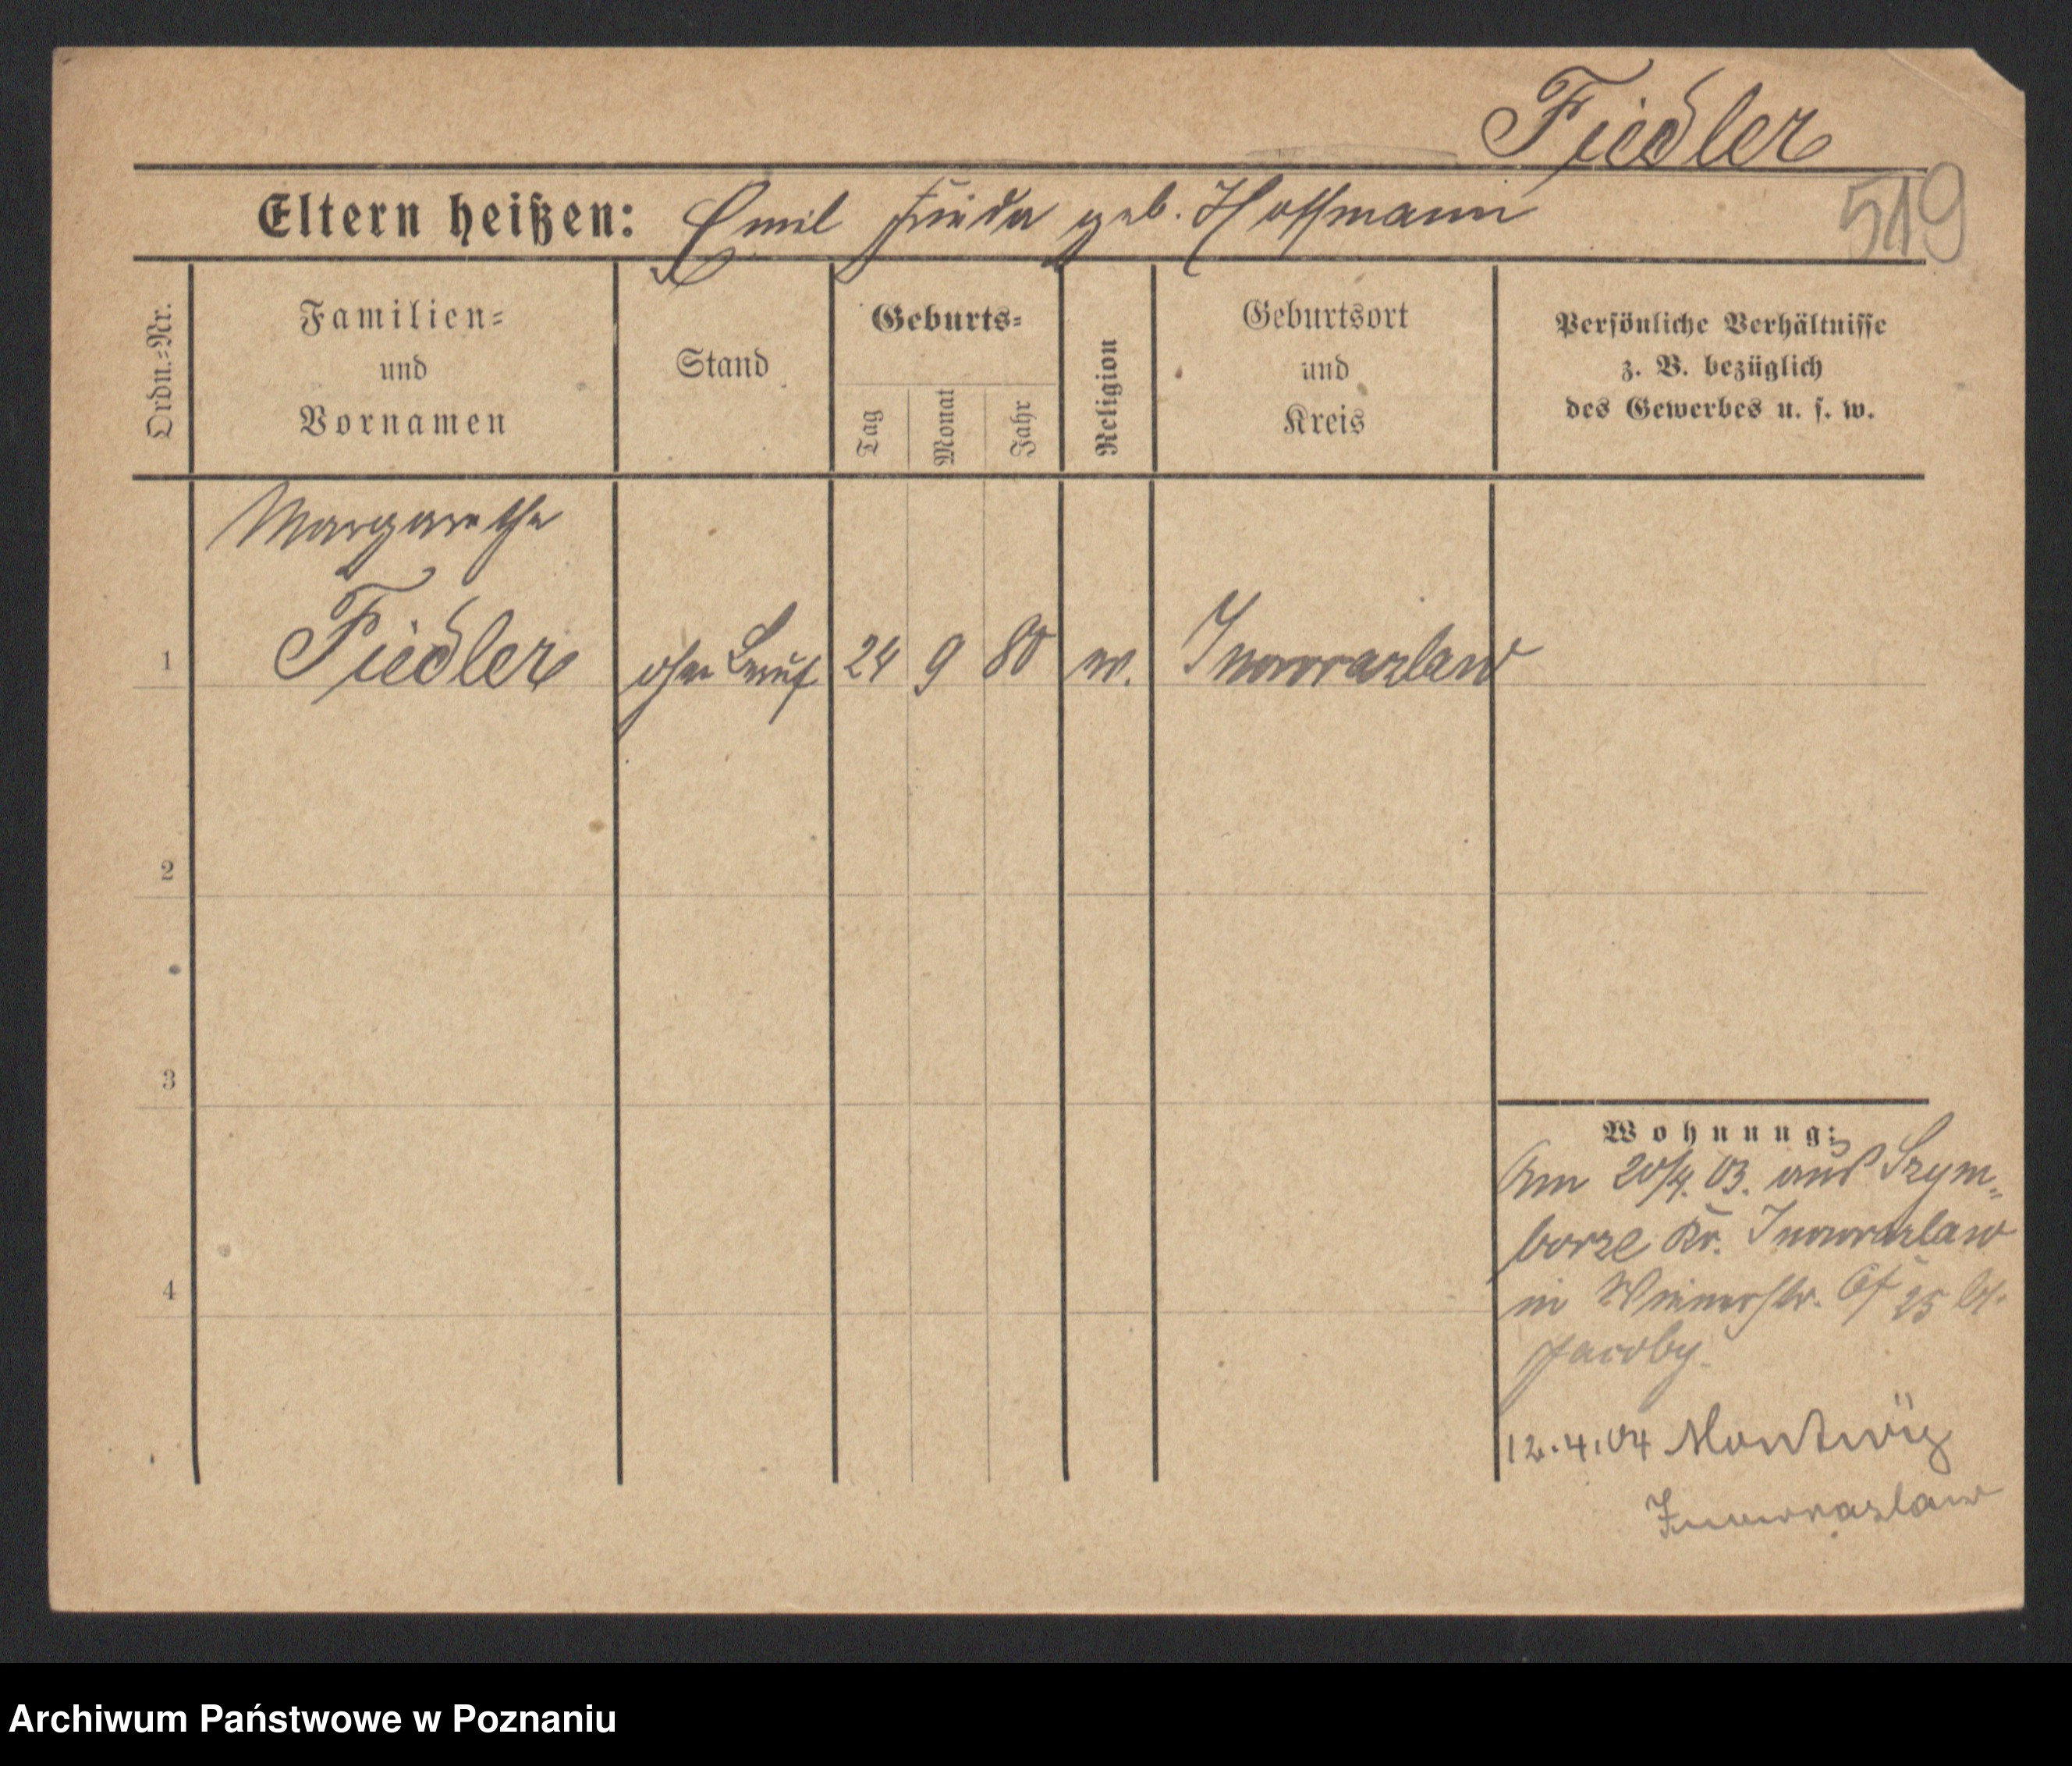 Fiedler
519
Eltern heißen: Emil Frieda geb. Hoffmann
Ordn.=Nr.
Familien=
und
Vornamen
Stand
Geburts=
Tag
Monat
Jahr
Religion
Geburtsort
und
Kreis
Persönliche Verhältnisse
z. B. bezüglich
des Gewerbes u. s. w.
Margarethe
1 Fiedler ohne Beruf 24 9 80 Inowrazlaw
2
3
4
Wohnung:
Am 20/4. 03. aus Szym=
borze Kr. Inowrazlaw
in 25
Jacoby.
12.4.04 Montwy
Inowrazlaw
Archiwum Państwowe w Poznaniu